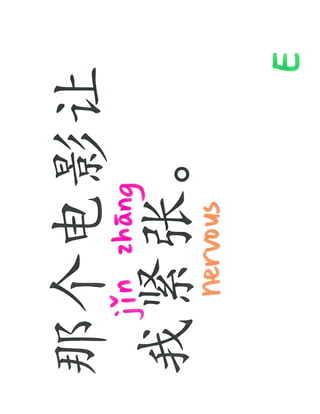 E
那个电影让
jǐn zhāng
我紧张。
nervous